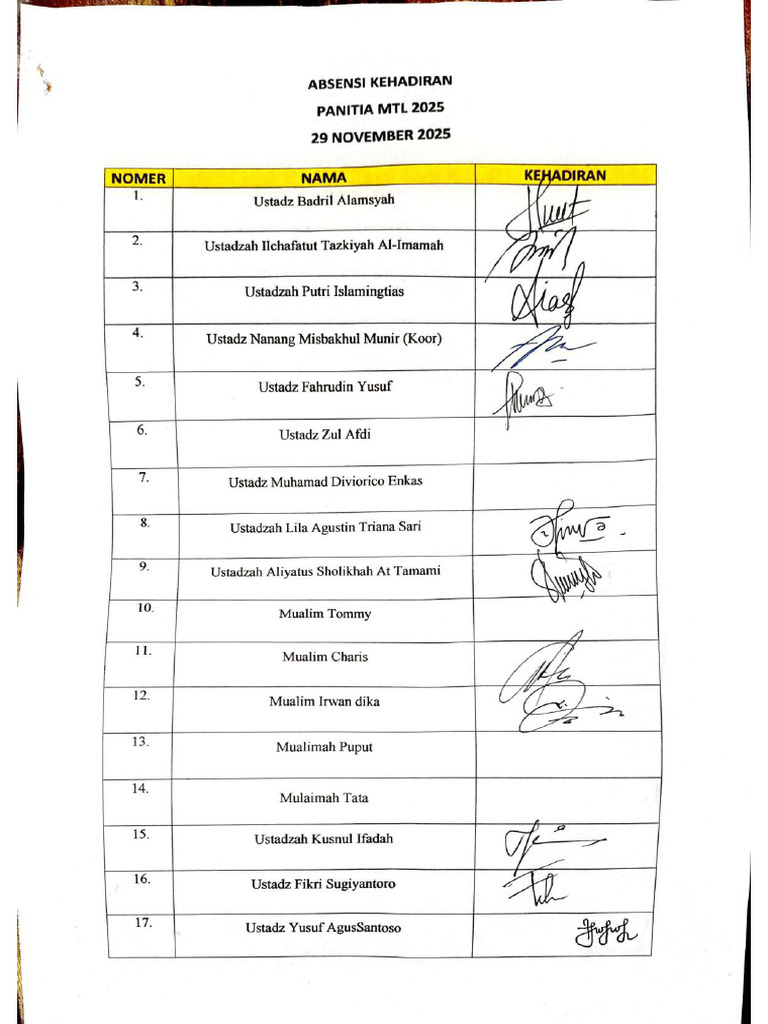 ABSENSI KEHADIRAN
PANITIA MTL 2025
29 NOVEMBER 2025
NOMER NAMA KEHADIRAN
1. Ustadz Badril Alamsyah
2. Ustadzah Ilchafatut Tazkiyah Al-Imamah
3. Ustadzah Putri Islamingtias
4. Ustadz Nanang Misbakhul Munir (Koor)
5. Ustadz Fahrudin Yusuf
6. Ustadz Zul Afdi
7. Ustadz Muhamad Diviorico Enkas
8. Ustadzah Lila Agustin Triana Sari
9. Ustadzah Aliyatus Sholikhah At Tamami
10. Mualim Tommy
11. Mualim Charis
12. Mualim Irwan dika
13. Mualimah Puput
14. Mulaimah Tata
15. Ustadzah Kusnul Ifadah
16. Ustadz Fikri Sugiyantoro
17. Ustadz Yusuf AgusSantoso